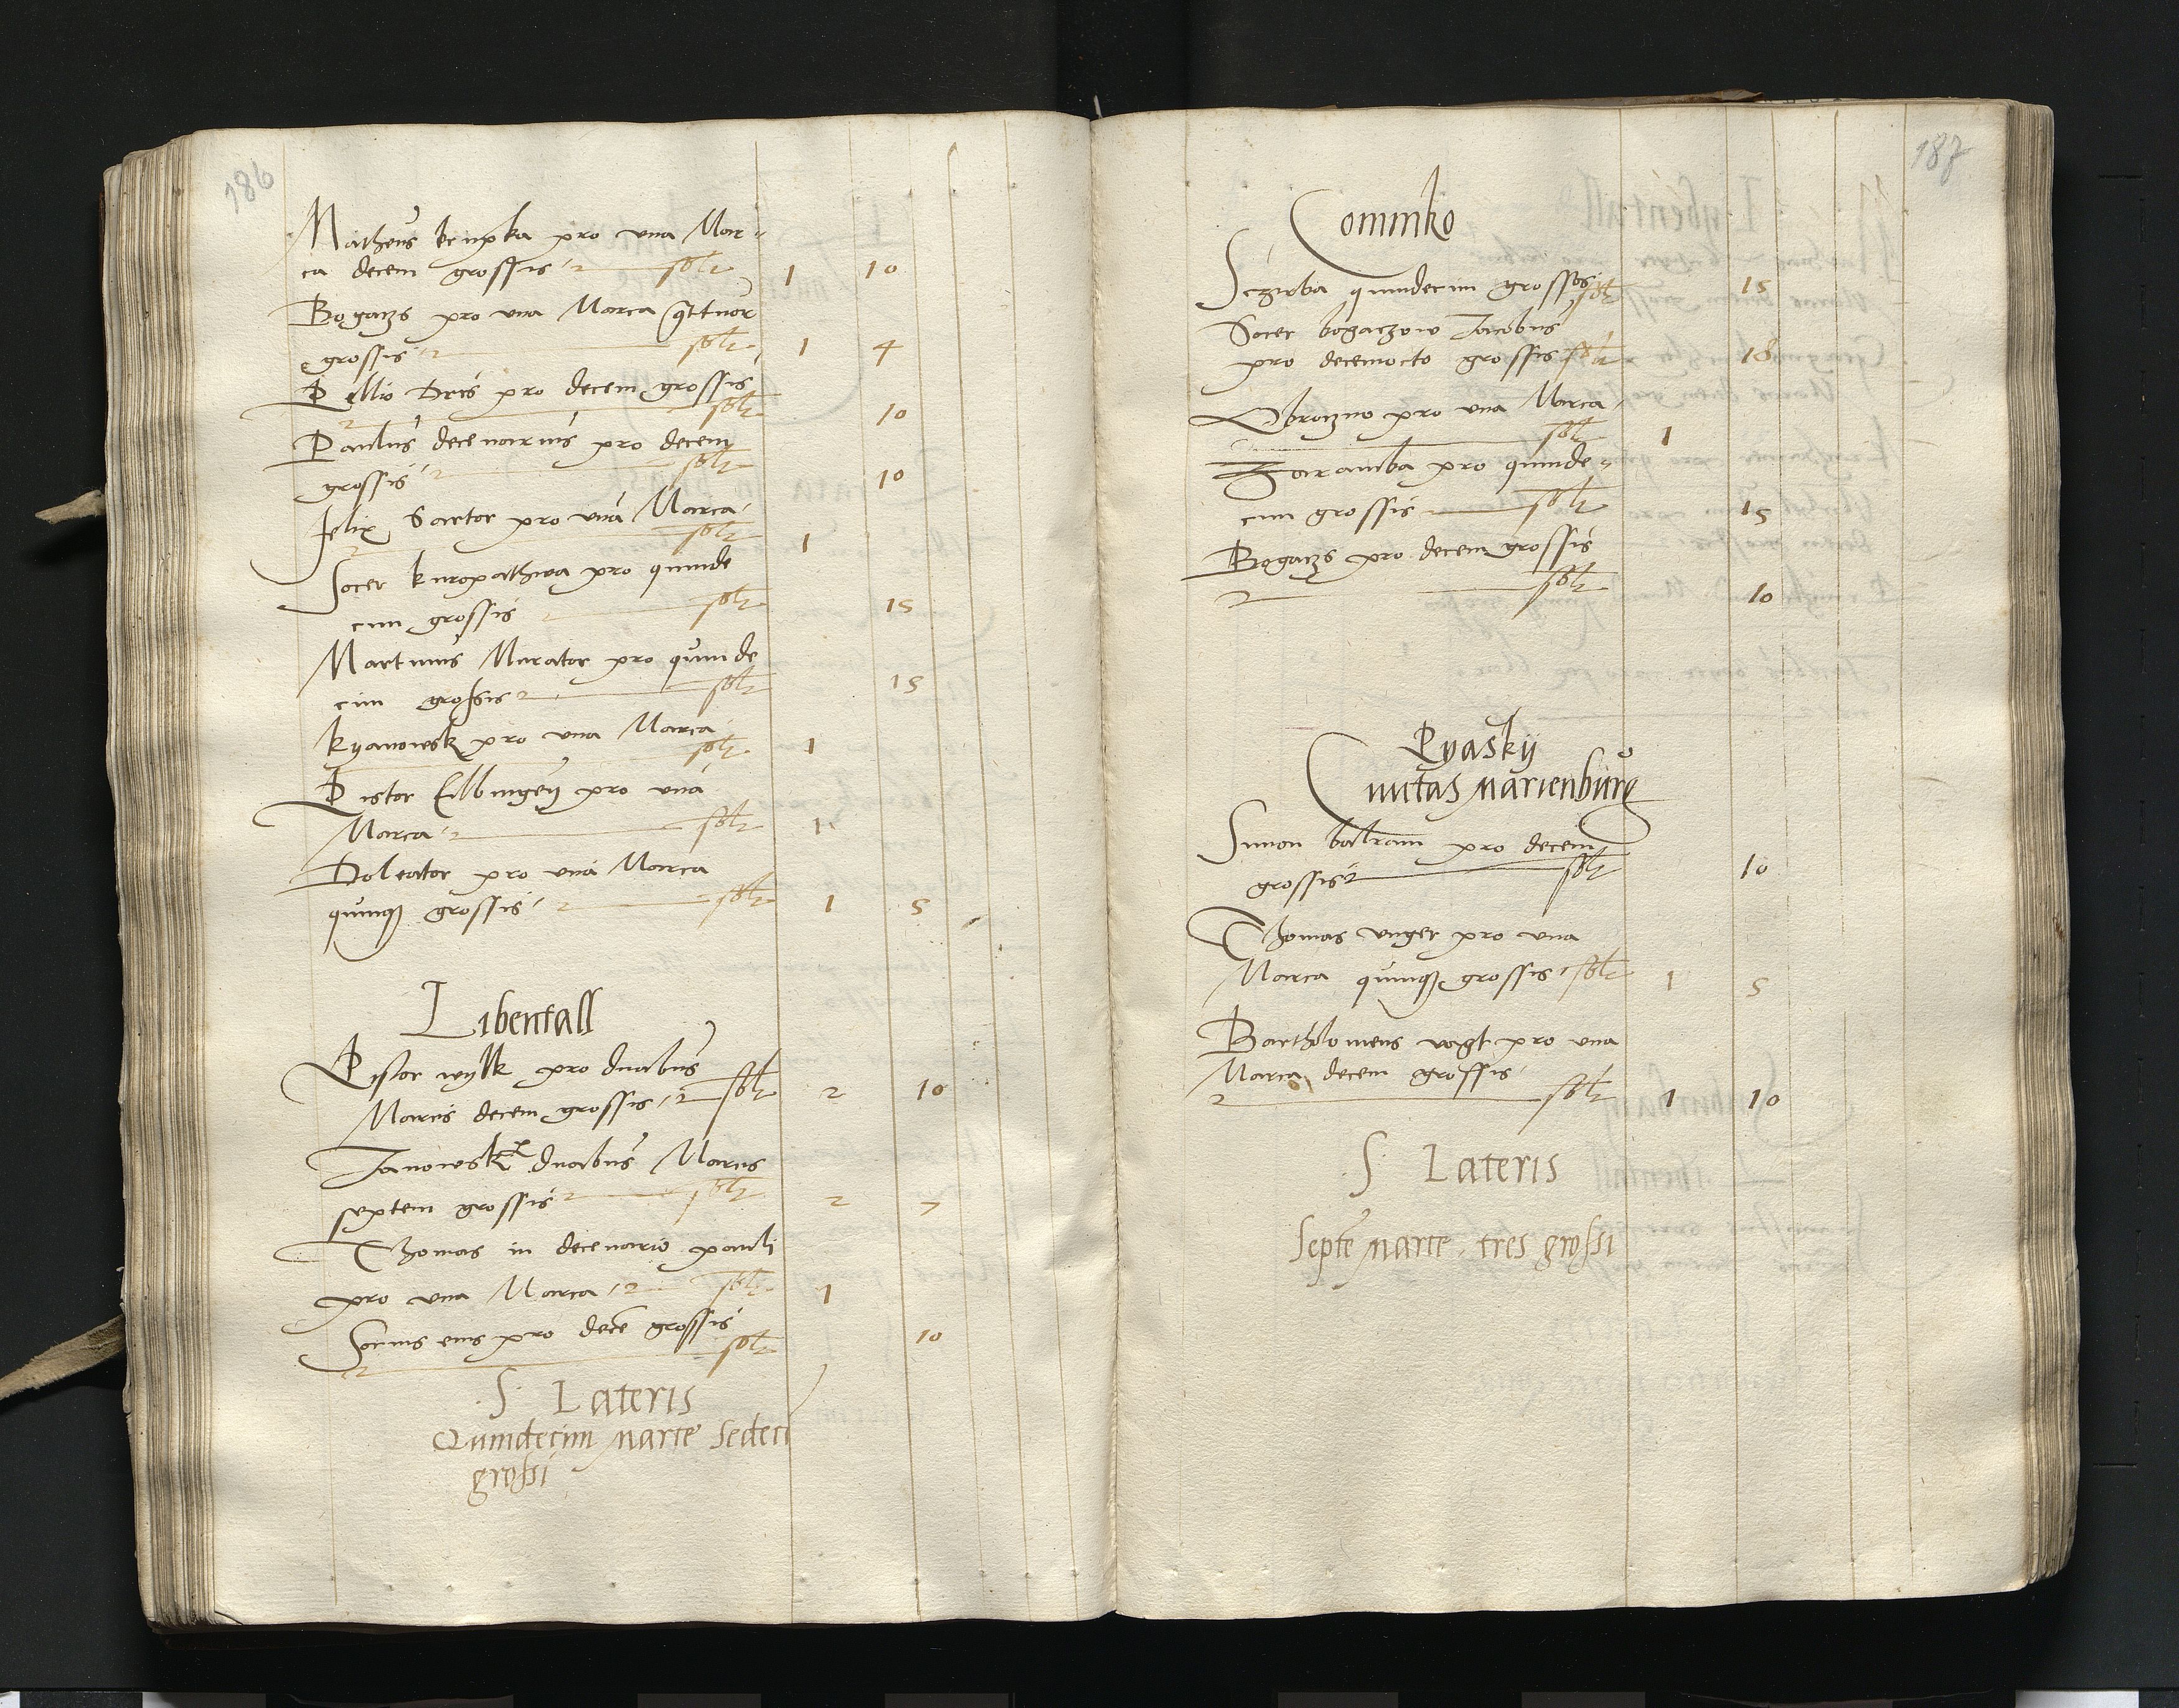 186
Matheus kempka pro una Mar„
ca decem grossis solt 1 10
Bogatzs pro una Marca qttuor
grossis solt 1 4
Pellio Dets pro decem grossis
solt 10
Paulus decenarius pro decem
grossis solt 10
Felix Sartor pro una Marca
solt 1
Socer kuropathwa pro quinde
cim grossis solt 15
Martinus Murator pro quinde
cim grossis solt 15
kyanowsk pro una Marca
solt 1
Pistor Eilbingen pro una
Marca solt 1
Doleator pro una Marca
quinqz grossis solt 1 5
Libentall
Pistor wylk pro duabus
Marcis decem grossis solt 2 10
Janowsk duabus Marcis
septem grossis solt 2 7
Thomas in decenario pauli
pro una Marca solt 1
Socius eius pro dece grossis
solt 10
S. Lateris
Quindecim marce sedeci
grossi
187
Comnko
Sczerba quindecim grossos solt 15
Socer bogaczow Jacobus
pro decemocto grossis solt 18
Obroczno pro una Marca
solt 1
Zaramba pro quinde„
cim grossis solt 15
Bogatzs pro decem grossis
solt 10
Pyaskÿ
Ciuitas marienburg
Simon baltram pro decem
grossis solt 10
Thomas unger pro una
Marca quinqz grossis solt 1 5
Bartholomeus vogt pro una
Marca decem grossis
solt 1 10
S. Lateris
Septe marce tres grossi